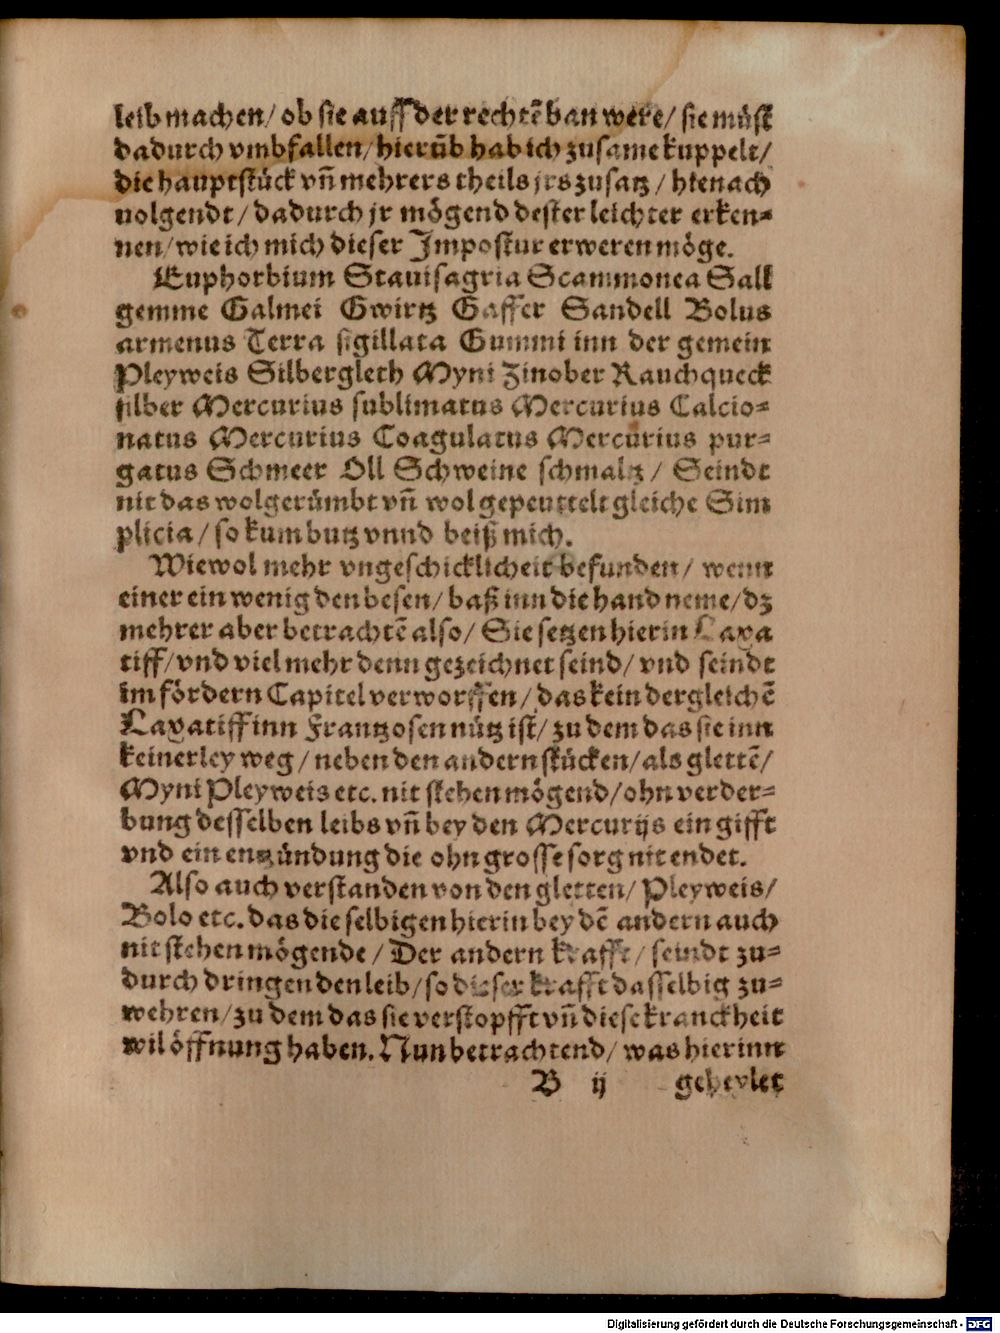 leib machen/ ob sie auff der rechtẽ ban were/ sie müst
dadurch vmbfallen/ hierüb hab ich zusame kuppelt/
die hauptstück vñ mehrers theils jrs zusatz / hienach
volgendt/ dadurch jr mögend dester leichter erken=
nen/ wie ich mich dieser Impostur erweren möge.
Euphorbium Stauisagria Scammonea Sall
gemme Galmei Gwirtz Gaffer Sandell Bolus
armenus Terra sigillata Gummi inn der gemein
Pleyweis Silbergleth Myni Zinober Rauchqueck
silber Mercurius sublimatus Mercurius Calcio=
natus Mercurius Coagulatus Mercurius pur=
gatus Schmeer Oll Schweine schmaltz / Seindt
nit das wolgerümbt vñ wol gepeuttelt gleiche Sim
plicia / so kum butz vnnd beiß mich.
Wiewol mehr vngeschicklicheit befunden/ wenn
einer ein wenig den besen/ baß inn die hand neme/ dz
mehrer aber betrachtẽ also/ Sie setzen hierin Laxa
tiff/ vnd viel mehr denn gezeichnet seind/ vnd seindt
im fördern Capitel verworffen/ das kein dergleichẽ
Laxatiff inn Frantzosen nütz ist/ zu dem das sie inn
keinerley weg / neben den andern stücken/ als glettẽ/
Myni Pleyweis etc. nit stehen mögend/ ohn verder=
bung desselben leibs vñ bey den Mercurijs ein gifft
vnd ein entzündung die ohn grosse sorg nit endet.
Also auch verstanden von den gletten/ Pleyweis/
Bolo etc. das die selbigen hierin bey dẽ andern auch
nit stehen mögende / Der andern krafft/ seindt zu=
durch dringen den leib/ so dieser krafft dasselbig zu=
wehren/ zu dem das sie verstopfft vñ diese kranckheit
wil öffnung haben. Nun betrachtend/ was hierinn
B ij geheylet
Digitalisierung gefördert durch die Deutsche Forschungsgemeinschaft - DFG